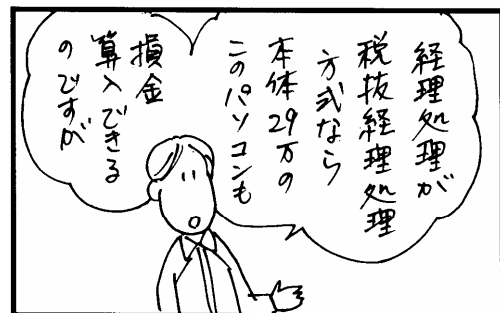 経理処理が
税抜経理処理
方式なら
本体29万の
このパソコンも
損金
算入できる
のですが